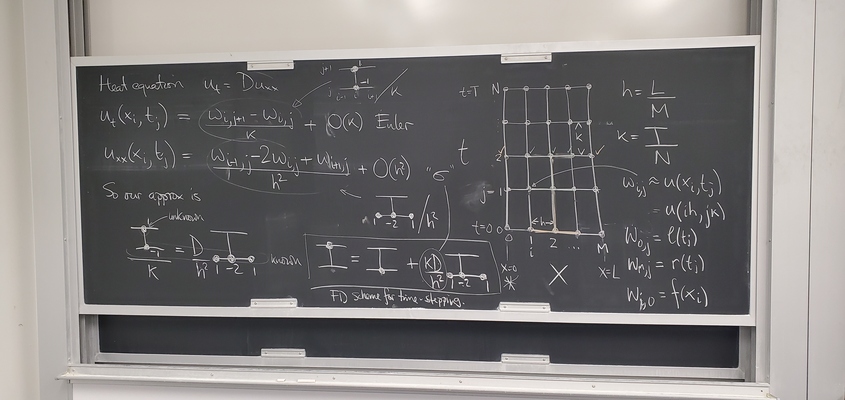 Heat equation u_t = Du_xx
j+1
j
i-1 i i+1
1
-1
/K
u_t(x_i, t_j) = (w_i,j+1 - w_i,j)/K + O(K) Euler
u_xx(x_i, t_j) = (w_i-1,j - 2w_ij + w_i+1,j)/h² + O(h²)
"σ"
1 -2 1 /h²
So our approx is
unknown
1
-1
/K = D/h² 1 -2 1
known
= + KD/h² 1 -2 1
FD scheme for time-stepping.
t=T N
t
2
j=1
t=0 0
0 1 2 ... M
x=0 X x=L
*
h
K
h = L/M
K = T/N
w_i,j ≈ u(x_i, t_j)
= u(ih, jK)
w_0,j = l(t_j)
w_M,j = r(t_j)
w_i,0 = f(x_i)